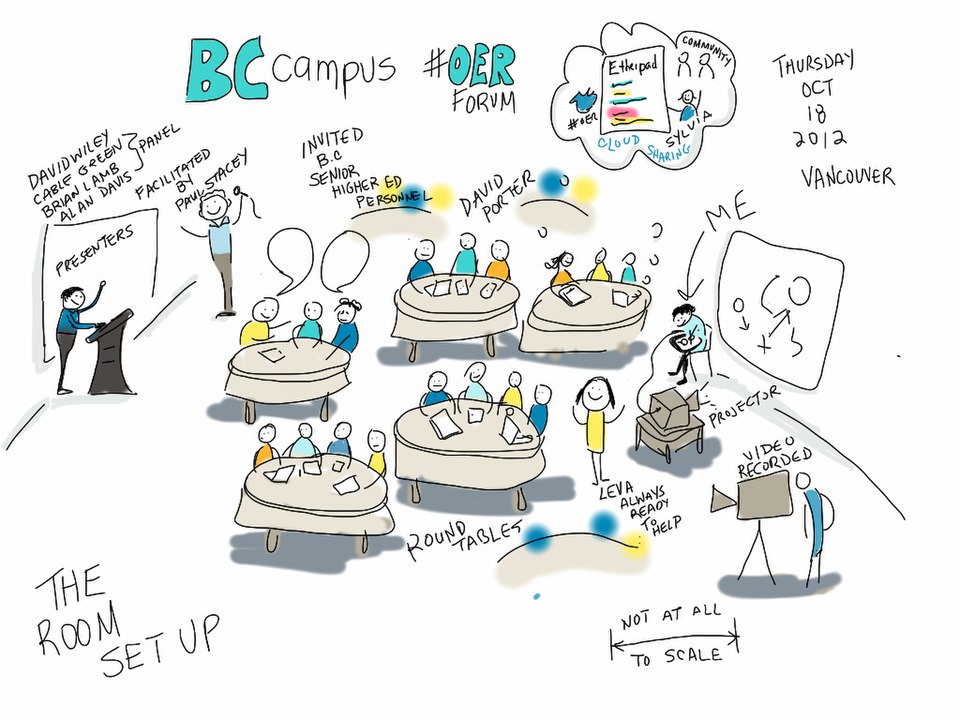 BCcampus #OER
FORUM
Etherpad
COMMUNITY
#OER
SYLVIA
CLOUD
SHARING
THURSDAY
OCT
18
2012
VANCOUVER
DAVID WILEY
CABLE GREEN
BRIAN LAMB
ALAN DAVIS
PANEL
FACILITATED
BY
PAUL STACEY
INVITED
B.C
SENIOR
HIGHER ED
PERSONNEL
DAVID
PORTER
ME
PRESENTERS
PROJECTOR
VIDEO
RECORDED
LEVA
ALWAYS
READY
TO
HELP
ROUND
TABLES
THE
ROOM
SET UP
NOT AT ALL
TO SCALE